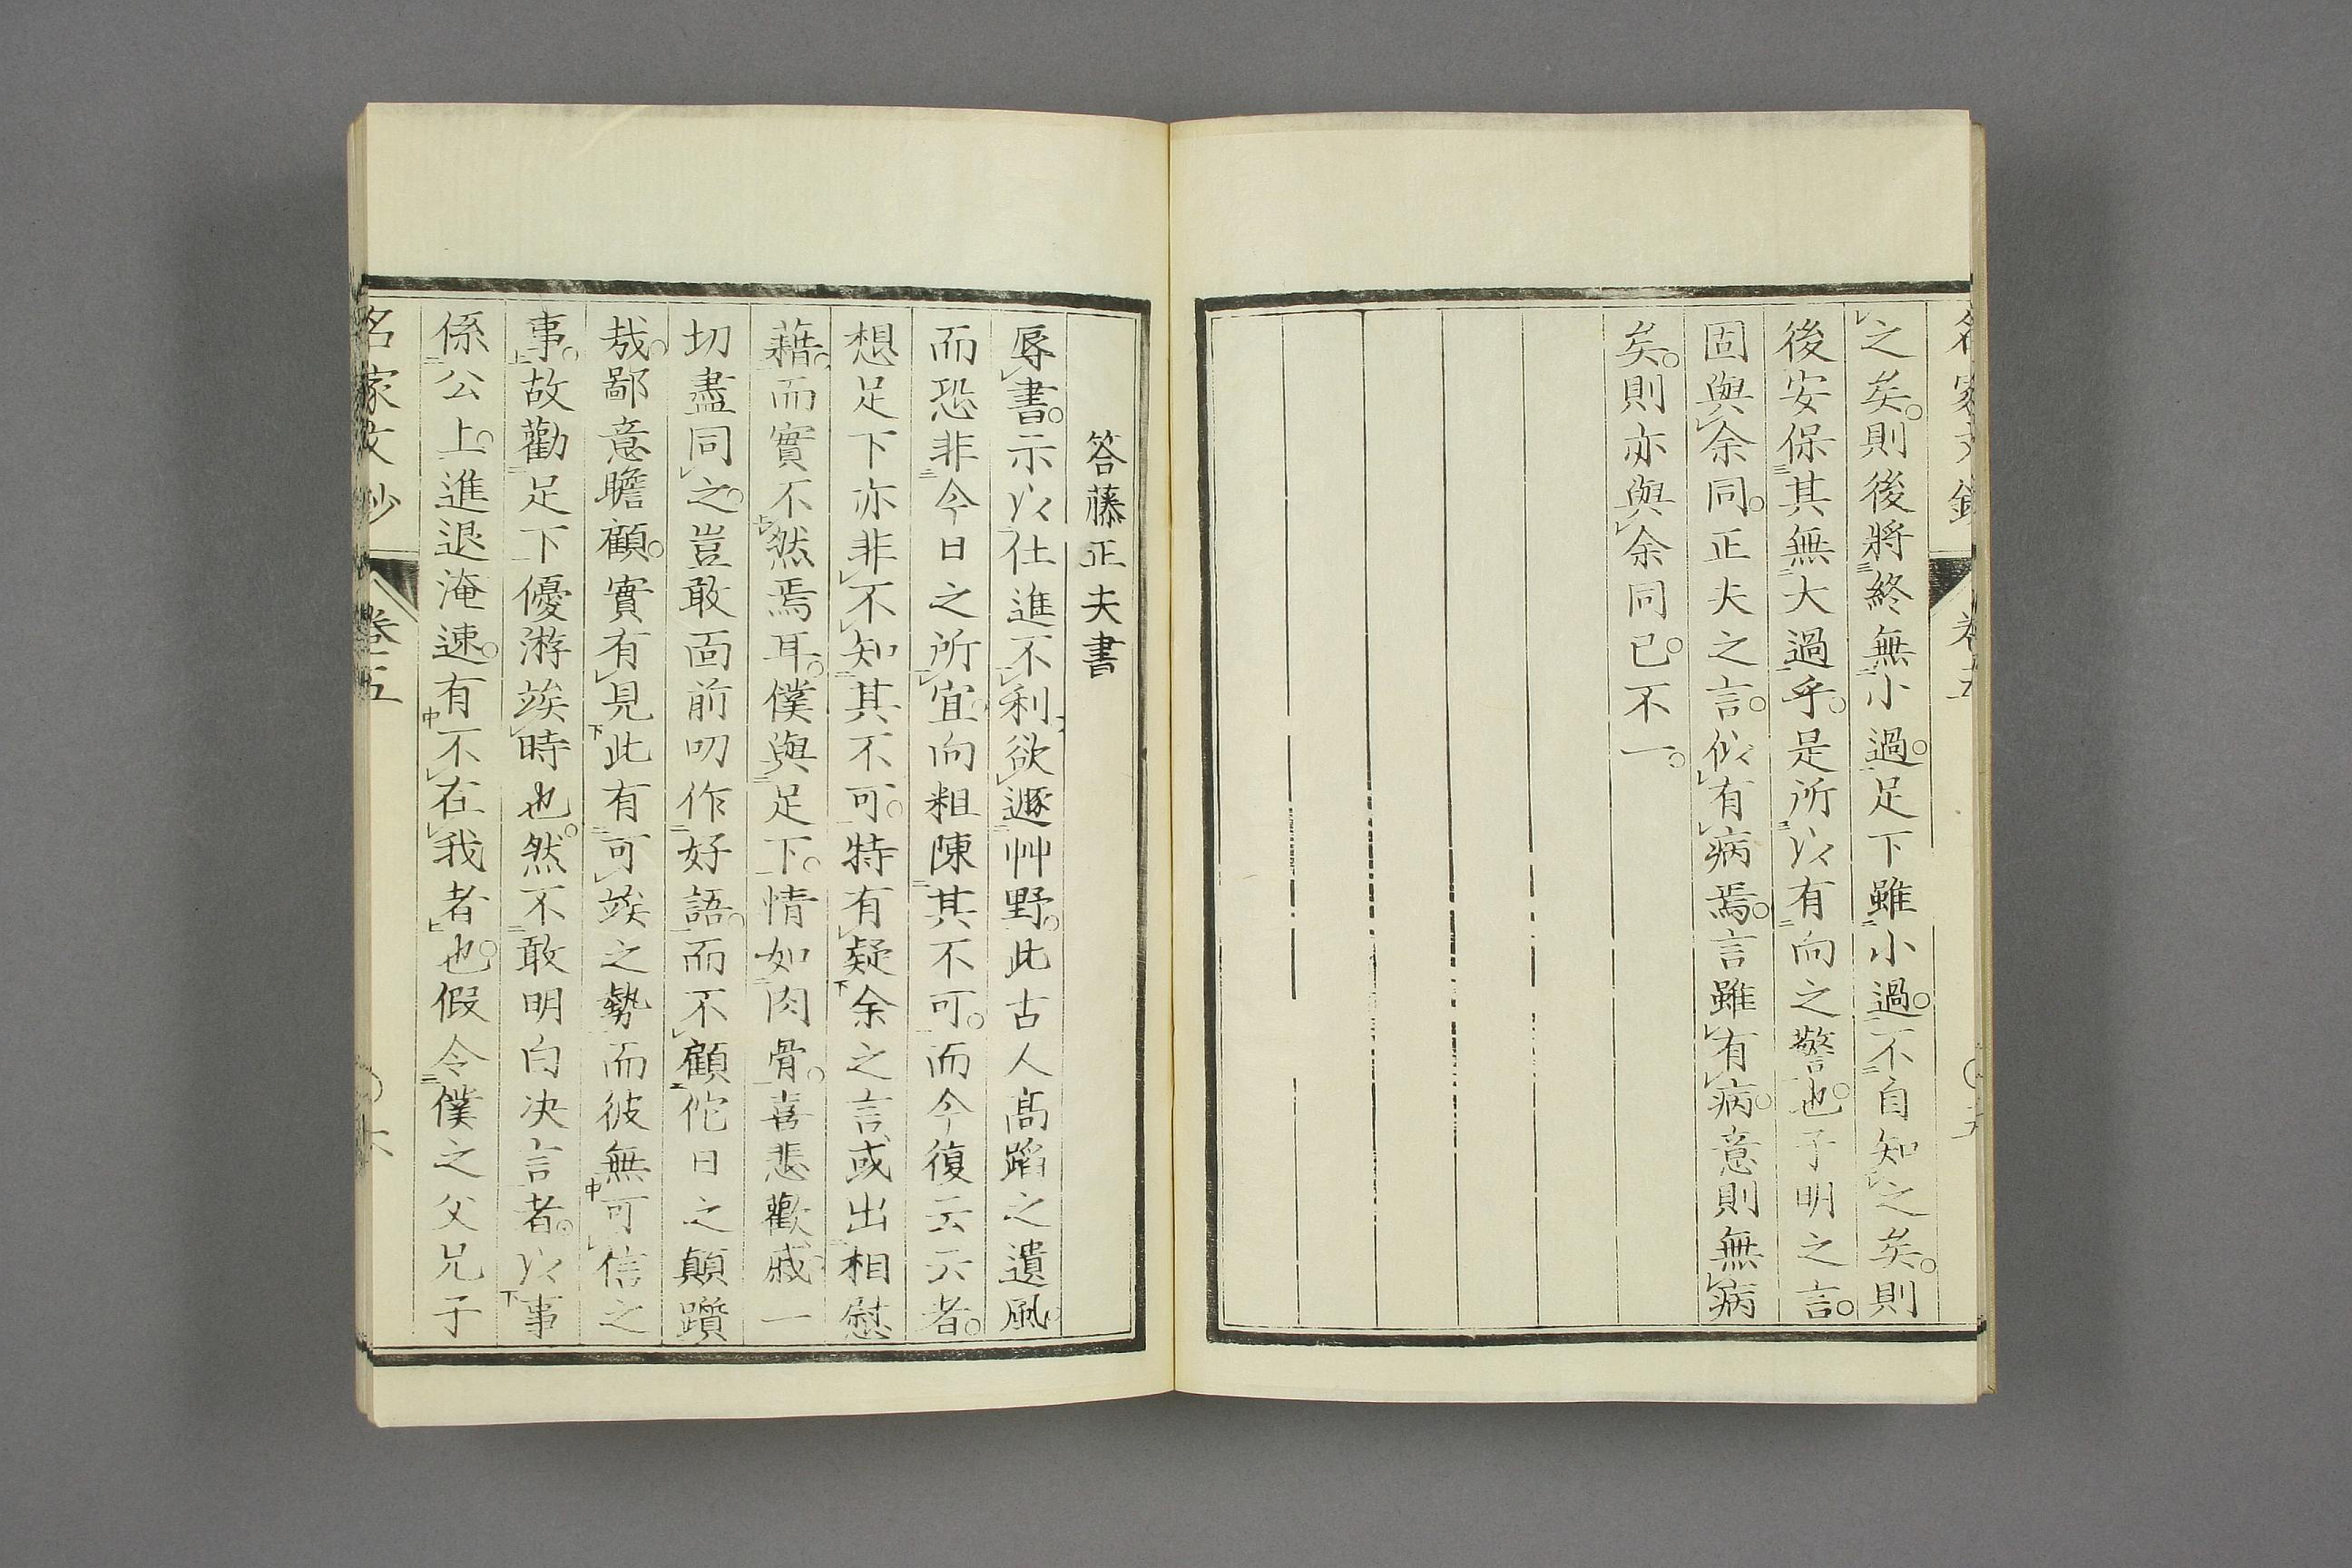 之矣。則後將終無小過。足下雖小過。不自知之矣。則
後安保其無大過乎。是所以有向之警也。子明之言。
固與余同。正夫之言。似有病焉。言雖有病。意則無病
矣。則亦與余同已。不一。
答藤正夫書
辱書。示以仕進不利、欲遯艸野。此古人高蹈之遺風。
而恐非今日之所宜。向粗陳其不可。而今復云云者。
想足下亦非不知其不可。特有疑余之言或出相慰
藉。而實不然焉耳。僕與足下。情如肉骨。喜悲歡戚一
切盡同之。豈敢面前叨作好語。而不顧佗日之顛躓
哉。鄙意瞻顧。實有見此有可竢之勢而彼無可信之
事。故勸足下優游竢時也。然不敢明白決言者。以事
係公上。進退淹速。有不在我者也。假令僕之父兄于
名家文抄
卷五
六